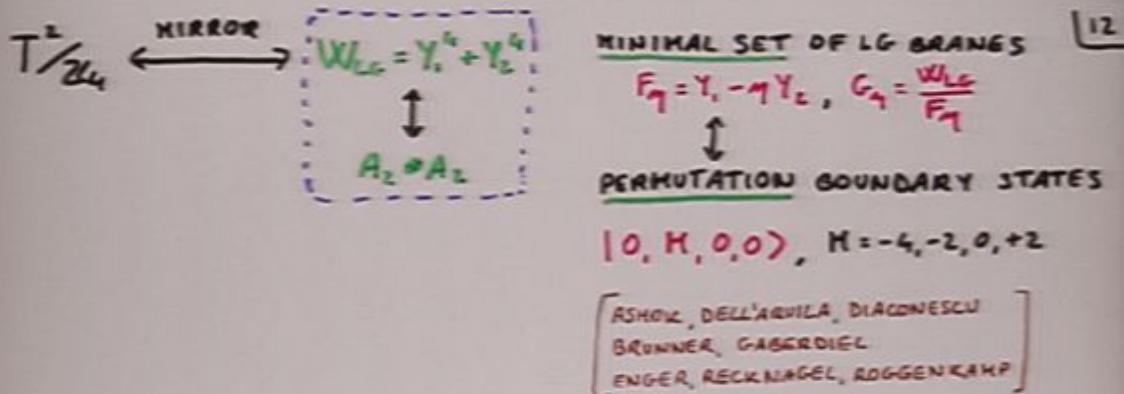 T²/ℤ₄
MIRROR
W_LG = Y₁⁴ + Y₂⁴
A₂ ⊗ A₂
MINIMAL SET OF LG BRANES
F_η = Y₁ - η Y₂, G_η = W_LG / F_η
PERMUTATION BOUNDARY STATES
|0, M, 0,0⟩, M = -4, -2, 0, +2
[ASHOK, DELL'AQUILA, DIACONESCU
BRUNNER, GABERDIEL
ENGER, RECKNAGEL, ROGGENKAMP]
12